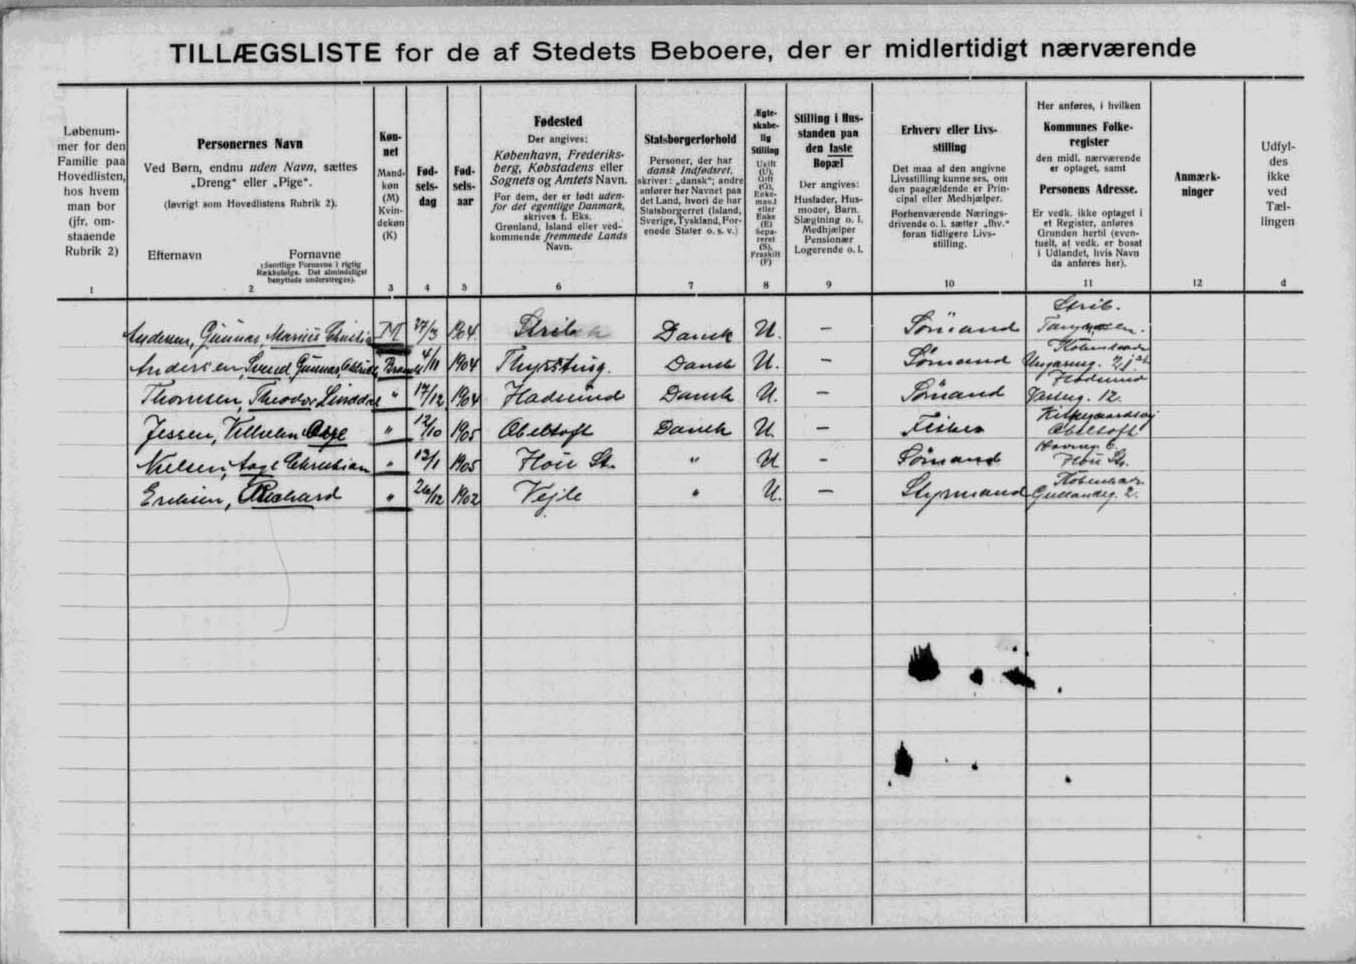 TILLÆGSLISTE for de af Stedets Beboere, der er midlertidigt nærværende
Løbenum-
mer for den
Familie paa
Hovedlisten,
hos hvem
man bor
(jfr. om-
staaende
Rubrik 2)
1
Personernes Navn
Ved Børn, endnu uden Navn, sættes
„Dreng“ eller „Pige“.
(Iøvrigt som Hovedlistens Rubrik 2).
Efternavn Fornavne
(Samtlige Fornavne i rigtig
Rækkefølge. Det almindeligst
benyttede understreges).
2
Køn-
net
Mand-
køn
(M)
Kvin-
dekøn
(K)
3
Fød-
sels-
dag
4
Fød-
sels-
aar
5
Fødested
Der angives:
København, Frederiks-
berg, Købstadens eller
Sognets og Amtets Navn.
For dem, der er født uden-
for det egentlige Danmark,
skrives f. Eks.
Grønland, Island eller ved-
kommende fremmede Lands
Navn.
6
Statsborgerforhold
Personer, der har
dansk Indfødsret,
skriver: „dansk“; andre
anfører her Navnet paa
det Land, hvori de har
Statsborgerret (Island,
Sverige, Tyskland, For-
enede Stater o. s. v.)
7
Ægte-
skabe-
lig
Stilling
Ugift
(U),
Gift
(G),
Enke-
mand
eller
Enke
(E)
Sepa-
reret
(S),
Fraskilt
(F)
8
Stilling i Hus-
standen paa
den faste
Bopæl
Der angives:
Husfader, Hus-
moder, Barn,
Slægtning o. l.
Medhjælper
Pensionær
Logerende o. l.
9
Erhverv eller Livs-
stilling
Det maa af den angivne
Livsstilling kunne ses, om
den paagældende er Prin-
cipal eller Medhjælper.
Forhenværende Nærings-
drivende o. l. sætter „fhv.“
foran tidligere Livs-
stilling.
10
Her anføres, i hvilken
Kommunes Folke-
register
den midl. nærværende
er optaget, samt
Personens Adresse.
Er vedk. ikke optaget i
et Register, anføres
Grunden hertil (even-
tuelt, at vedk. er bosat
i Udlandet, hvis Navn
da anføres her).
11
Anmærk-
ninger
12
Udfyl-
des
ikke
ved
Tæl-
lingen
d
Andersen, Gunnar, Marius Christian M 27/3 1904 Strib Dansk U. – Sømand Strib.
Andersen, Svend Gunnar 4/11 1904 Thyrsting. Dansk U. – Sømand
Thomsen, Theodor Lind " 17/12 1904 Hadsund Dansk U. – Sømand Hadsund 12.
Jessen, Vilhelm Aage " 12/10 1905 Ebeltoft Dansk U. – Fisker Ebeltoft
Nielsen, Aage Christian " 12/1 1905 Hou St. " U – Sømand Hou St.
Eriksen, Richard " 26/12 1902 Vejle " U. – Styrmand København 2.